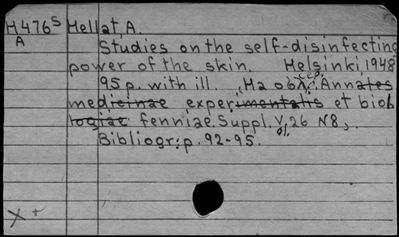 H476s Hellat, A.
A Studies on the self-disinfecting
power of the skin. Helsinki, 1948
95 p. with ill. (На обл. сер.: Annales
medicinae experimentalis et biol-
logiae fenniae. Suppl. v. 26 N8).
Bibliogr.: p. 92-95.
X +